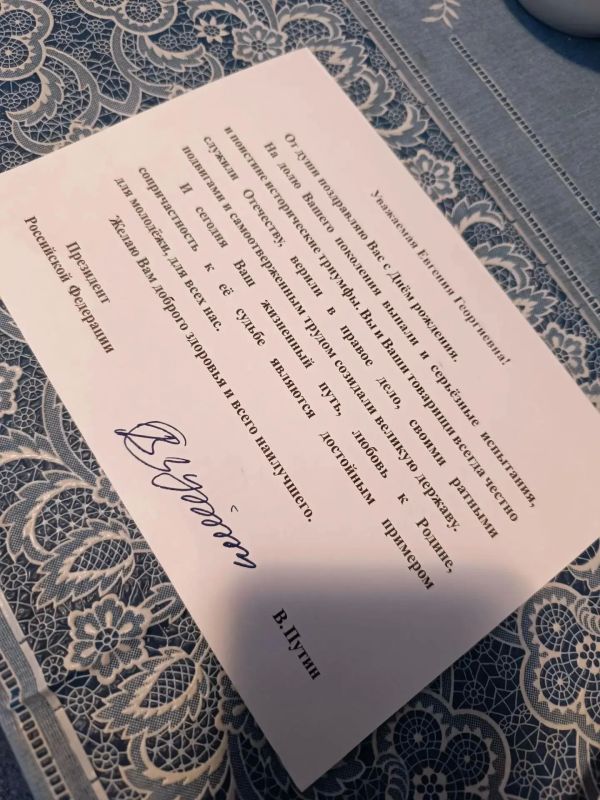 Уважаемая Евгения Георгиевна!
От души поздравляю Вас с Днём рождения.
На долю Вашего поколения выпали и серьёзные испытания,
и поистине исторические триумфы. Вы и Ваши товарищи всегда честно
служили Отечеству, верили в правое дело, своими ратными
подвигами и самоотверженным трудом созидали великую державу.
И сегодня Ваш жизненный путь, любовь к Родине,
сопричастность к её судьбе являются достойным примером
для молодёжи, для всех нас.
Желаю Вам доброго здоровья и всего наилучшего.
Президент
Российской Федерации
В.Путин